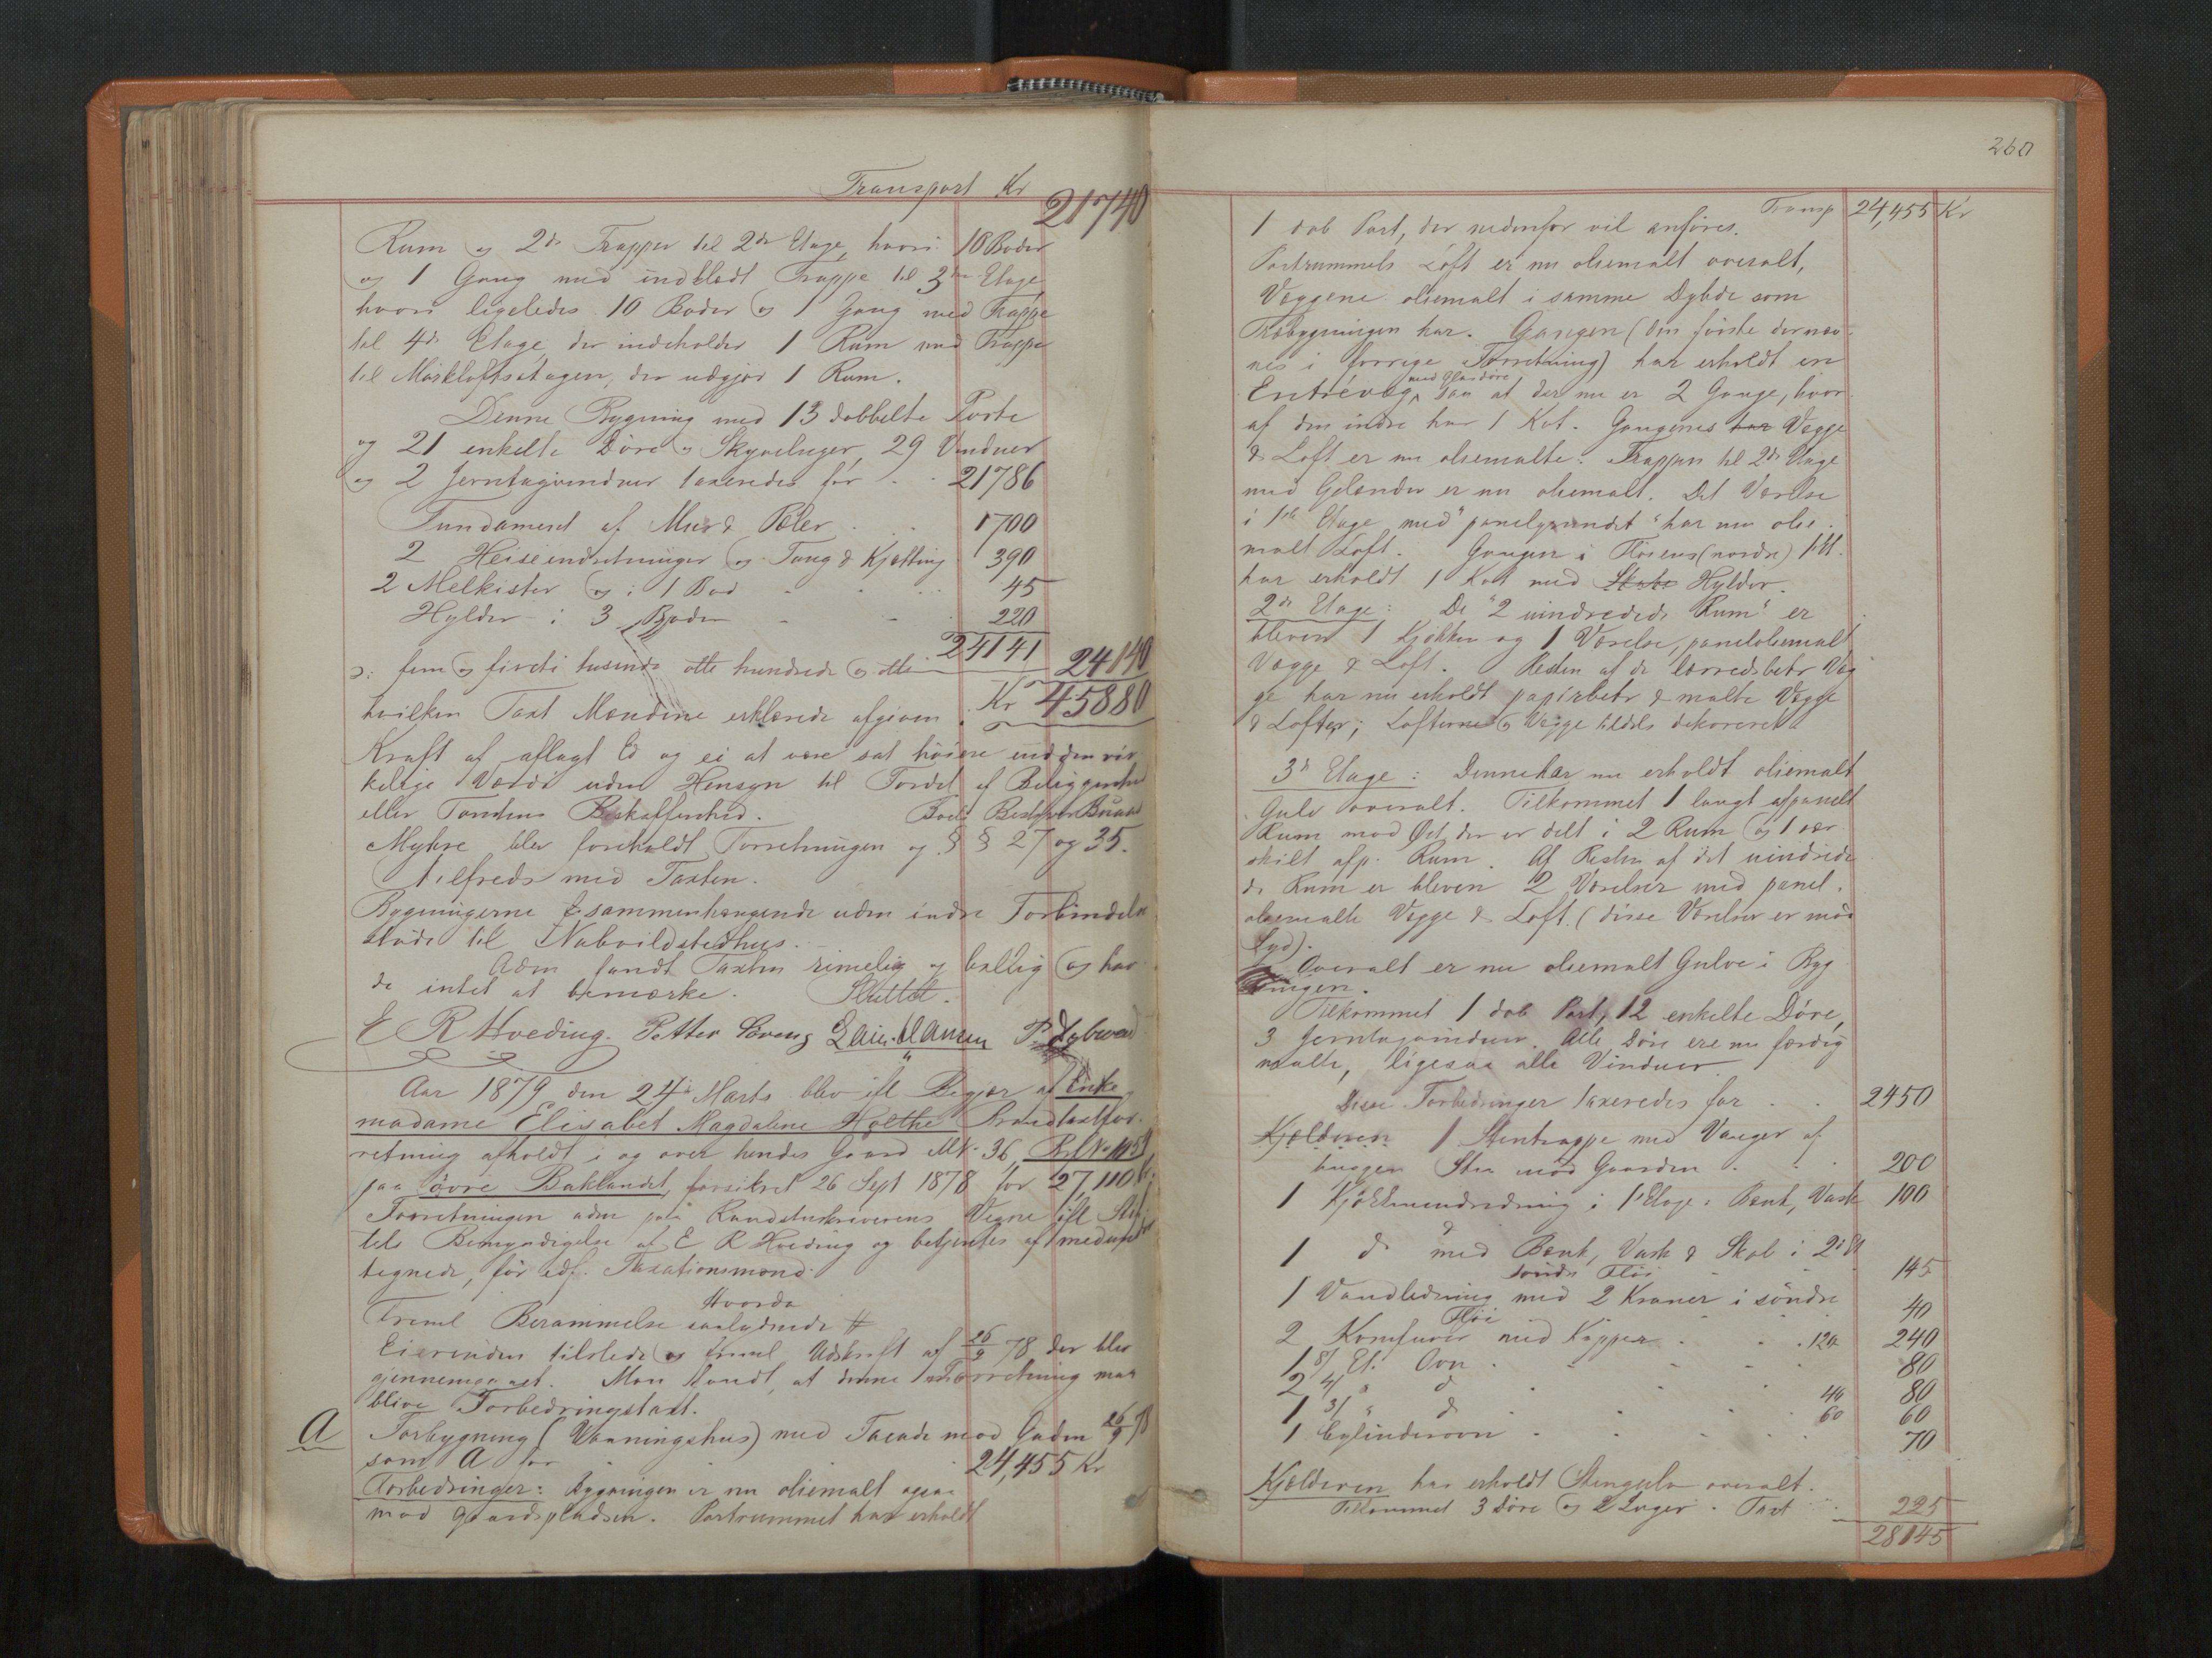 Transport Kr 21740
Rum og 2de Trapper til 2de Etage, hvori 10 Boder
og 1 Gang med indklædt Trappe til 3die Etage
hvori ligeledes 10 Boder og 1 Gang med Trappe
til 4de Etage, der indeholder 1 Rum med Trappe
til Mørkloftsetagen, der udgjør 1 Rum.
Denne Bygning med 13 dobbelte Porte
og 21 enkelte Døre og Skyveluger, 29 Vinduer
og 2 Jerntagvinduer taxeredes for . . 21786
Fundament af Mur & Pæler . . 1700
2 Heiseindretninger og Taug & Kjætting 390
2 Melkister og i 1 Bod . . . 45
Hylder i 3 Boder - - 220
24141
ɔ: fem og fireti tusinde otte hundrede og otti 24140
hvilken Taxt Mændene erklærede afgiven Kr 45880
Kraft af aflagt Ed og ei at være sat høiere end den vir
kelige Værdi uden Hensyn til Fordel af Beliggenhed
eller Tomtens Beskaffenhed.
Myhre blev foreholdt Forretningen og § § 27 og 35.
tilfreds med Taxten.
Bygningerne sammenhængende uden indre Forbindelse
støde til Naboildstedhus.
Adm fandt Taxten rimelig og billig og hav
de intet at bemærke. Sluttet.
E R Hveding. Petter Lorens Hansen P. Nybrod
Aar 1879 den 24de Marts blev ifl Begjær af Enke
madame Elisabet Magdalene Holthe Brandtaxtfor
retning afholdt i og over hendes Gaard M.N. 36,
paa øvre Baklandet, forsikret 26 Sept 1878 for 27,110 Kr.
Forretningen adm paa Raadstueskriverens Vegne ifl Stif
tets Bemyndigelse af E R Hveding og betjentes af medunder
tegnede, før edf. Taxationsmænd.
Hvorda
Freml Berammelse saalydende #
Eierinden tilstede og freml Udskrift af 26/9 78 der blev
gjennemgaaet. Man fandt, at denne Forretning maa
blive Forbedringstaxt.
A Forbygning (Vaaningshus) med Facade mod Gaden 26/9 78
som A for . . . 24,455 Kr
Forbedringer: Bygningen er nu oliemalt ogsaa
mod gaardspladsen. Portrummet har erholdt
260
Transp 24,455 Kr
1 dob Port, der nedenfor vil anføres.
Portrummets Loft er nu oliemalt overalt,
Væggene oliemalt i samme Dybde som
Træbygningen har. Gangen (den første der næv
nes i forrige Forretning) har erholdt en
med Glasdøre
Entrévæg, saa at der nu er 2 Gange, hvor
af den indre har 1 Kot. Gangenes har Vægge
& Loft er nu oliemalte. Trappen til 2de Etage
med Gelænder er nu oliemalt. Det Værelse
i 1ste Etage med "panelgrundet" har nu olie
malt Loft. Gangen i Fløiens (nordre) 1 Et.
har erholdt 1 Kot med Skabe Hylder.
2de Etage: De "2 uindredede Rum" er
bleven 1 Kjøkken og 1 Værelse, paneloliemalt
Vægge & Loft. Resten af de lærredsbetr Væg
ge har nu erholdt papirbetr & malte Vægge
& Lofter; Lofterne og Vægge tildels dekoreret.
3de Etage: Denne har nu erholdt oliemalt
Gulv overalt. Tilkommet 1 langt afpanelt
Rum mod Øst, der er delt i 2 Rum og 1 sær
skilt afp. Rum. Af Resten af det uindrede
de Rum er bleven 2 Værelser med panel.
oliemalte Vægge & Loft. (disse Værelser er mod
Syd).
Overalt er nu oliemalt Gulve i Byg
ningen.
Tilkommet 1 dob Port, 12 enkelte Døre,
3 Jerntagvinduer. Alle Døre ere nu færdig
malte, ligesaa alle Vinduer.
Disse Forbedringer taxeredes for . . 2450
Kjælderen 1 Stentrappe med Vanger af
huggen Sten mod Gaarden . . . 200
1 Kjøkkenindredning i 1 Etage: Bænk, Vask 100
1 do med Bænk, Vask & Skab i 2de Et
søndre Fløi - - 145
1 Vandledning med 2 Kraner i søndre
Fløi 40
2 Komfurer med Kapper . . . 120 240
1 8/ Et. Ovn . - - - - 80
2 4/ " do . . - . 40 80
1 3/ " do . . . . 60 60
1 Cylinderovn . . . . . 70
Kjælderen har erholdt Stengulv overalt.
Tilkommet 3 Døre og 2 Luger . Taxt . . 225
28145